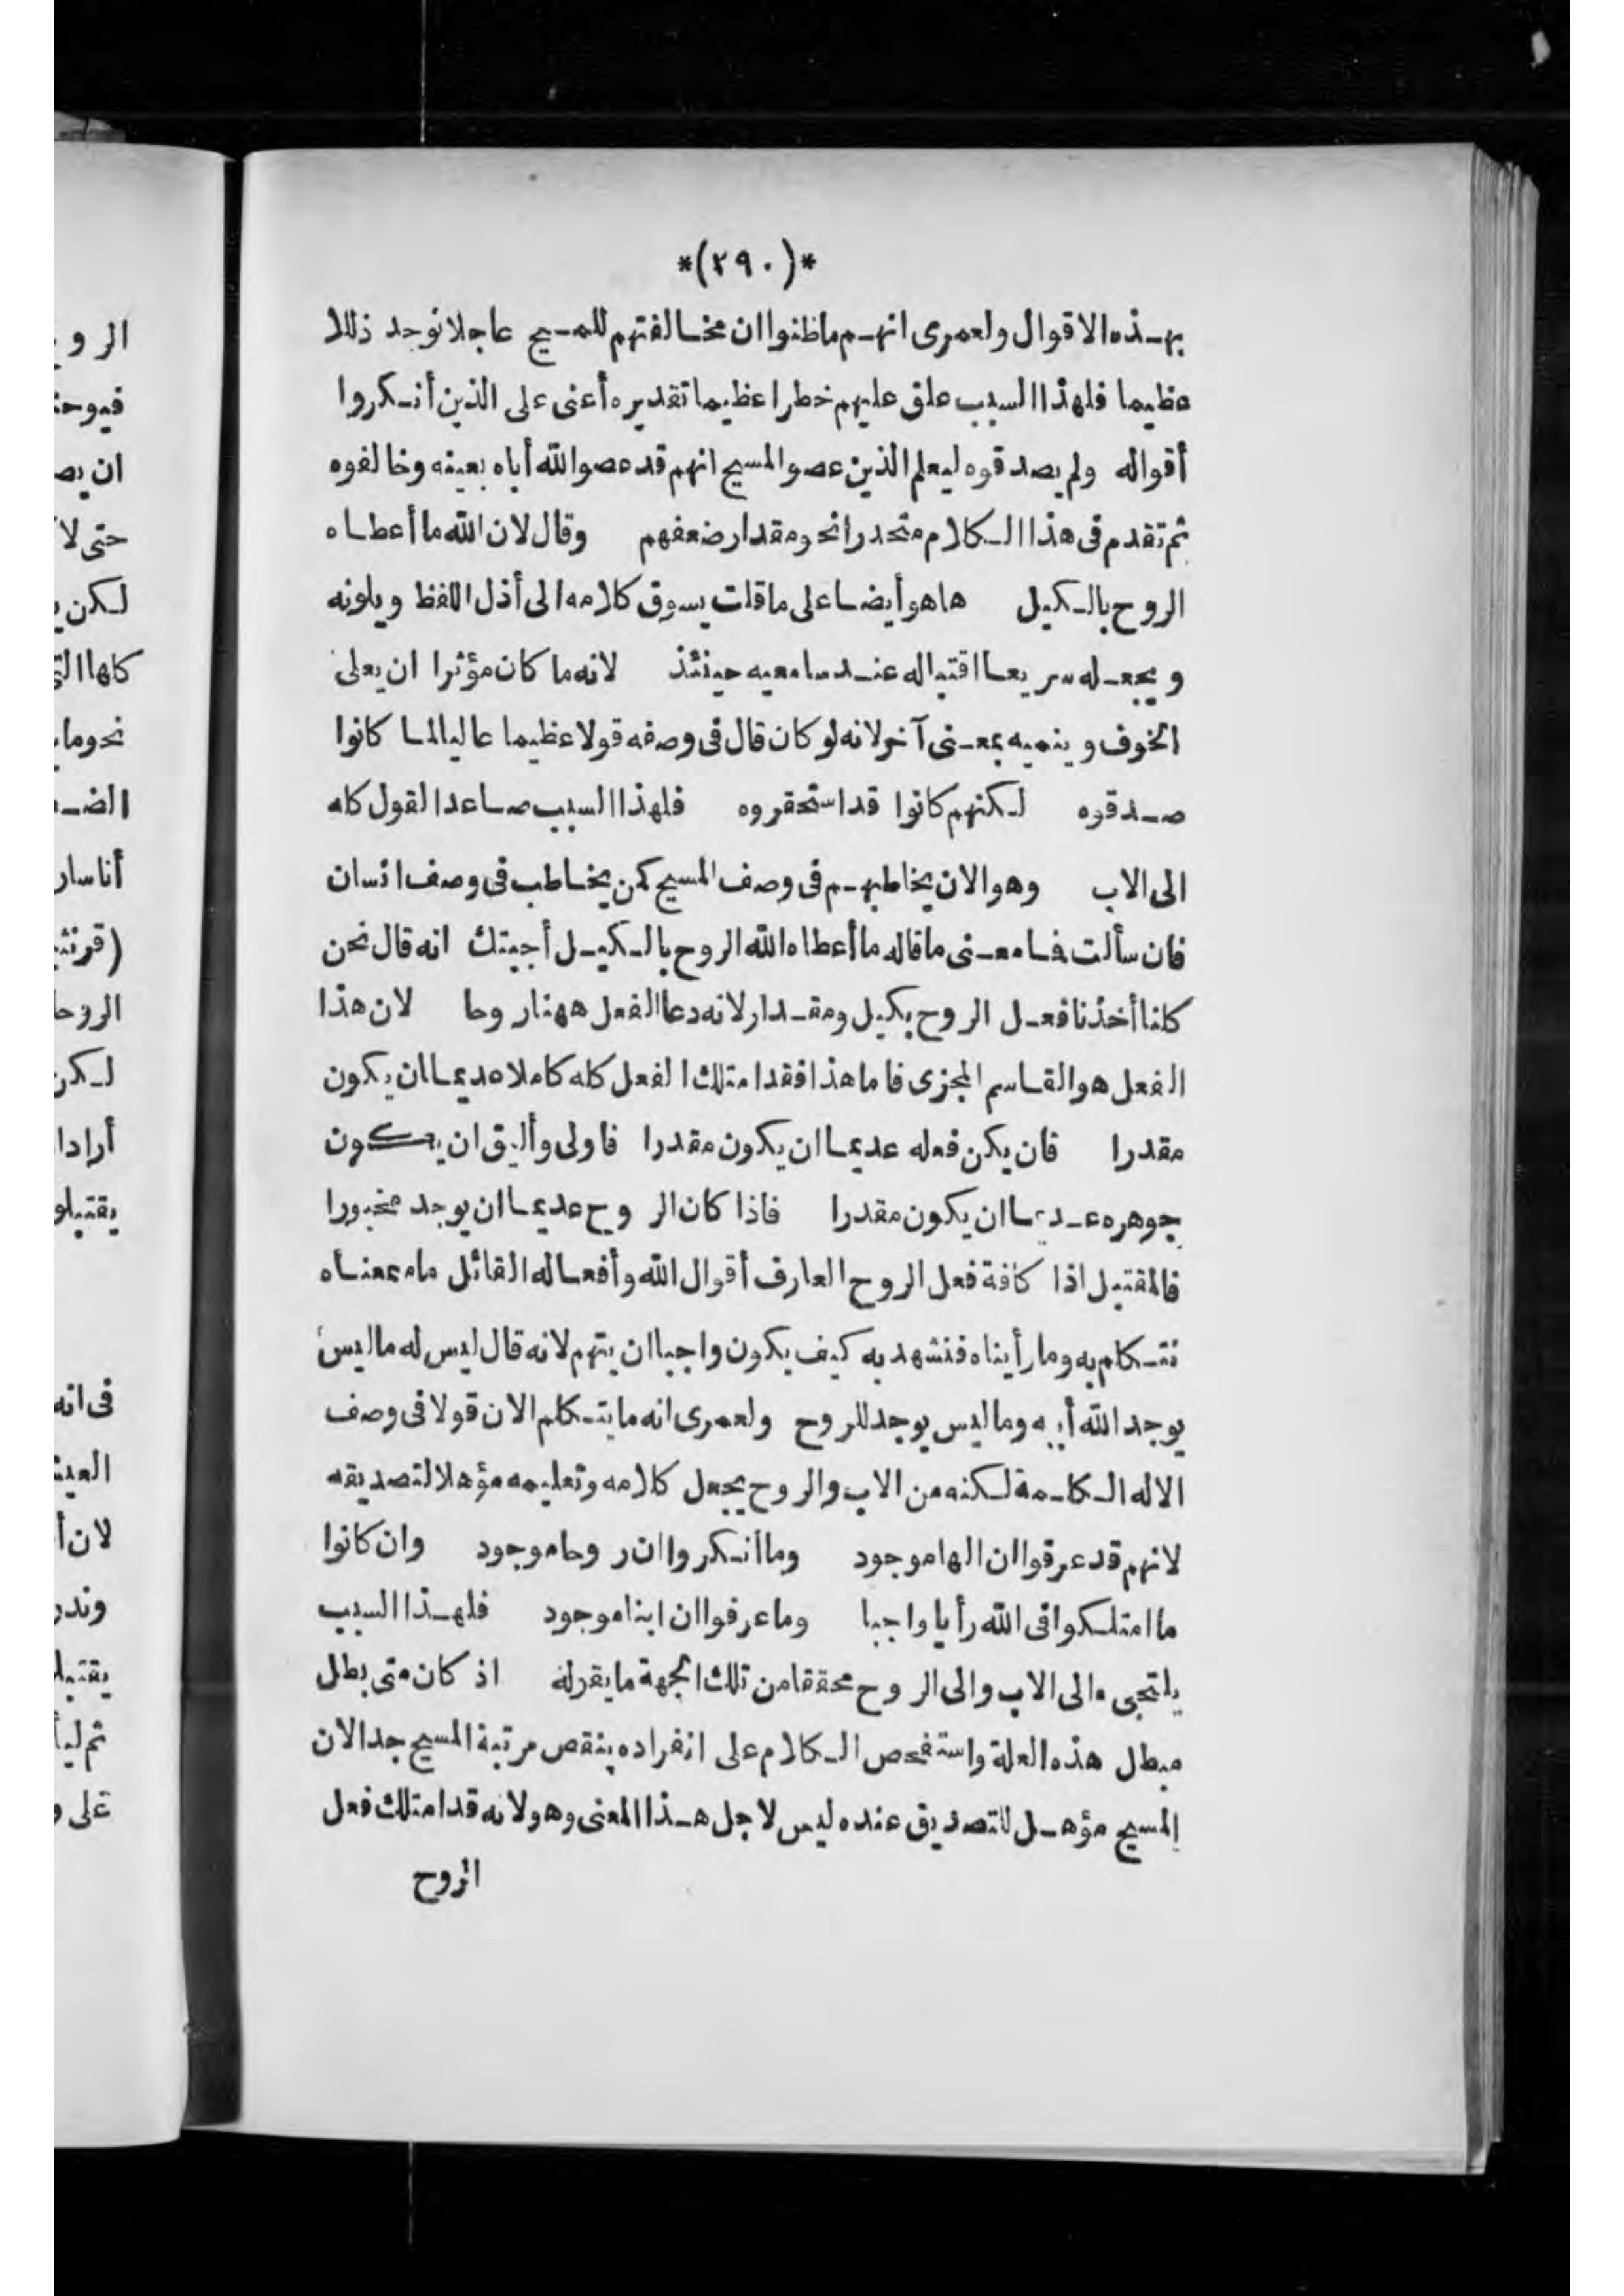 *(٢٩٠)*
بهذه الاقوال ولعمرى انهم ماظنوا ان مخالفتهم للمسيح عاجلا توجد ذللا
عظيما فلهذا السبب علق عليهم خطرا عظيما تقديره أعنى على الذين أنكروا
أقواله ولم يصدقوه ليعلم الذين عصو المسيح انهم قد عصوا الله أباه بعينه وخالفوه
ثم تقدم فى هذا الكلام متحدرا نحو مقدار ضعفهم وقال لان الله ما أعطاه
الروح بالكيل هاهو أيضا على ماقلت يسوق كلامه الى أذل اللفظ ويلونه
ويجعله سريعا اقتباله عند سامعيه حينئذ لانه ما كان مؤثرا ان يعلى
الخوف وينميه بمعنى آخر لانه لو كان قال فى وصفه قولا عظيما عاليا لما كانوا
صدقوه لكنهم كانوا قد استحقروه فلهذا السبب صاعدا القول كله
الى الاب وهو الان يخاطبهم فى وصف المسيح كمن يخاطب فى وصف انسان
فان سألت فما معنى ماقاله ما أعطاه الله الروح بالكيل أجبتك انه قال نحن
كلنا أخذنا فعل الروح بكيل ومقدار لانه دعا الفعل ههنا روحا لان هذا
الفعل هو القاسم المجزى فاما هذا فقد امتلك الفعل كله كاملا عديما ان يكون
مقدرا فان يكن فعله عديما ان يكون مقدرا فاولى وأليق ان يكون
جوهره عديما ان يكون مقدرا فاذا كان الروح عديما ان يوجد مخبورا
فالمقتبل اذا كافة فعل الروح العارف أقوال الله وأفعاله القائل ماسمعناه
نتكلم به وما رأيناه فنشهد به كيف يكون واجبا ان يتهم لانه قال ليس له ماليس
يوجد الله أبيه وماليس يوجد للروح ولعمرى انه ما يتكلم الان قولا فى وصف
الاله الكلمة لكنه من الاب والروح يجعل كلامه وتعليمه مؤهلا لتصديقه
لانهم قد عرفوا ان الها موجود وما أنكروا ان روحا موجود وان كانوا
ما امتلكوا فى الله رأيا واجبا وما عرفوا ان ابنا موجود فلهذا السبب
يلتجىء الى الاب والى الروح محققا من تلك الجهة ما يقوله اذ كان متى بطل
مبطل هذه العلة واستفحص الكلام على انفراده ينقص مرتبة المسيح جدا لان
المسيح مؤهل للتصديق عنده ليس لاجل هذا المعنى وهو لانه قد امتلك فعل
الروح
الرو
فيوح
ان يص
حتى لا
لكن
كلها التى
نحو ما
الض
أناسا
(قرنث
الروح
لكن
أرادا
يقتبلو
فى انه
العيش
لان
وند
يقتبل
ثم
على